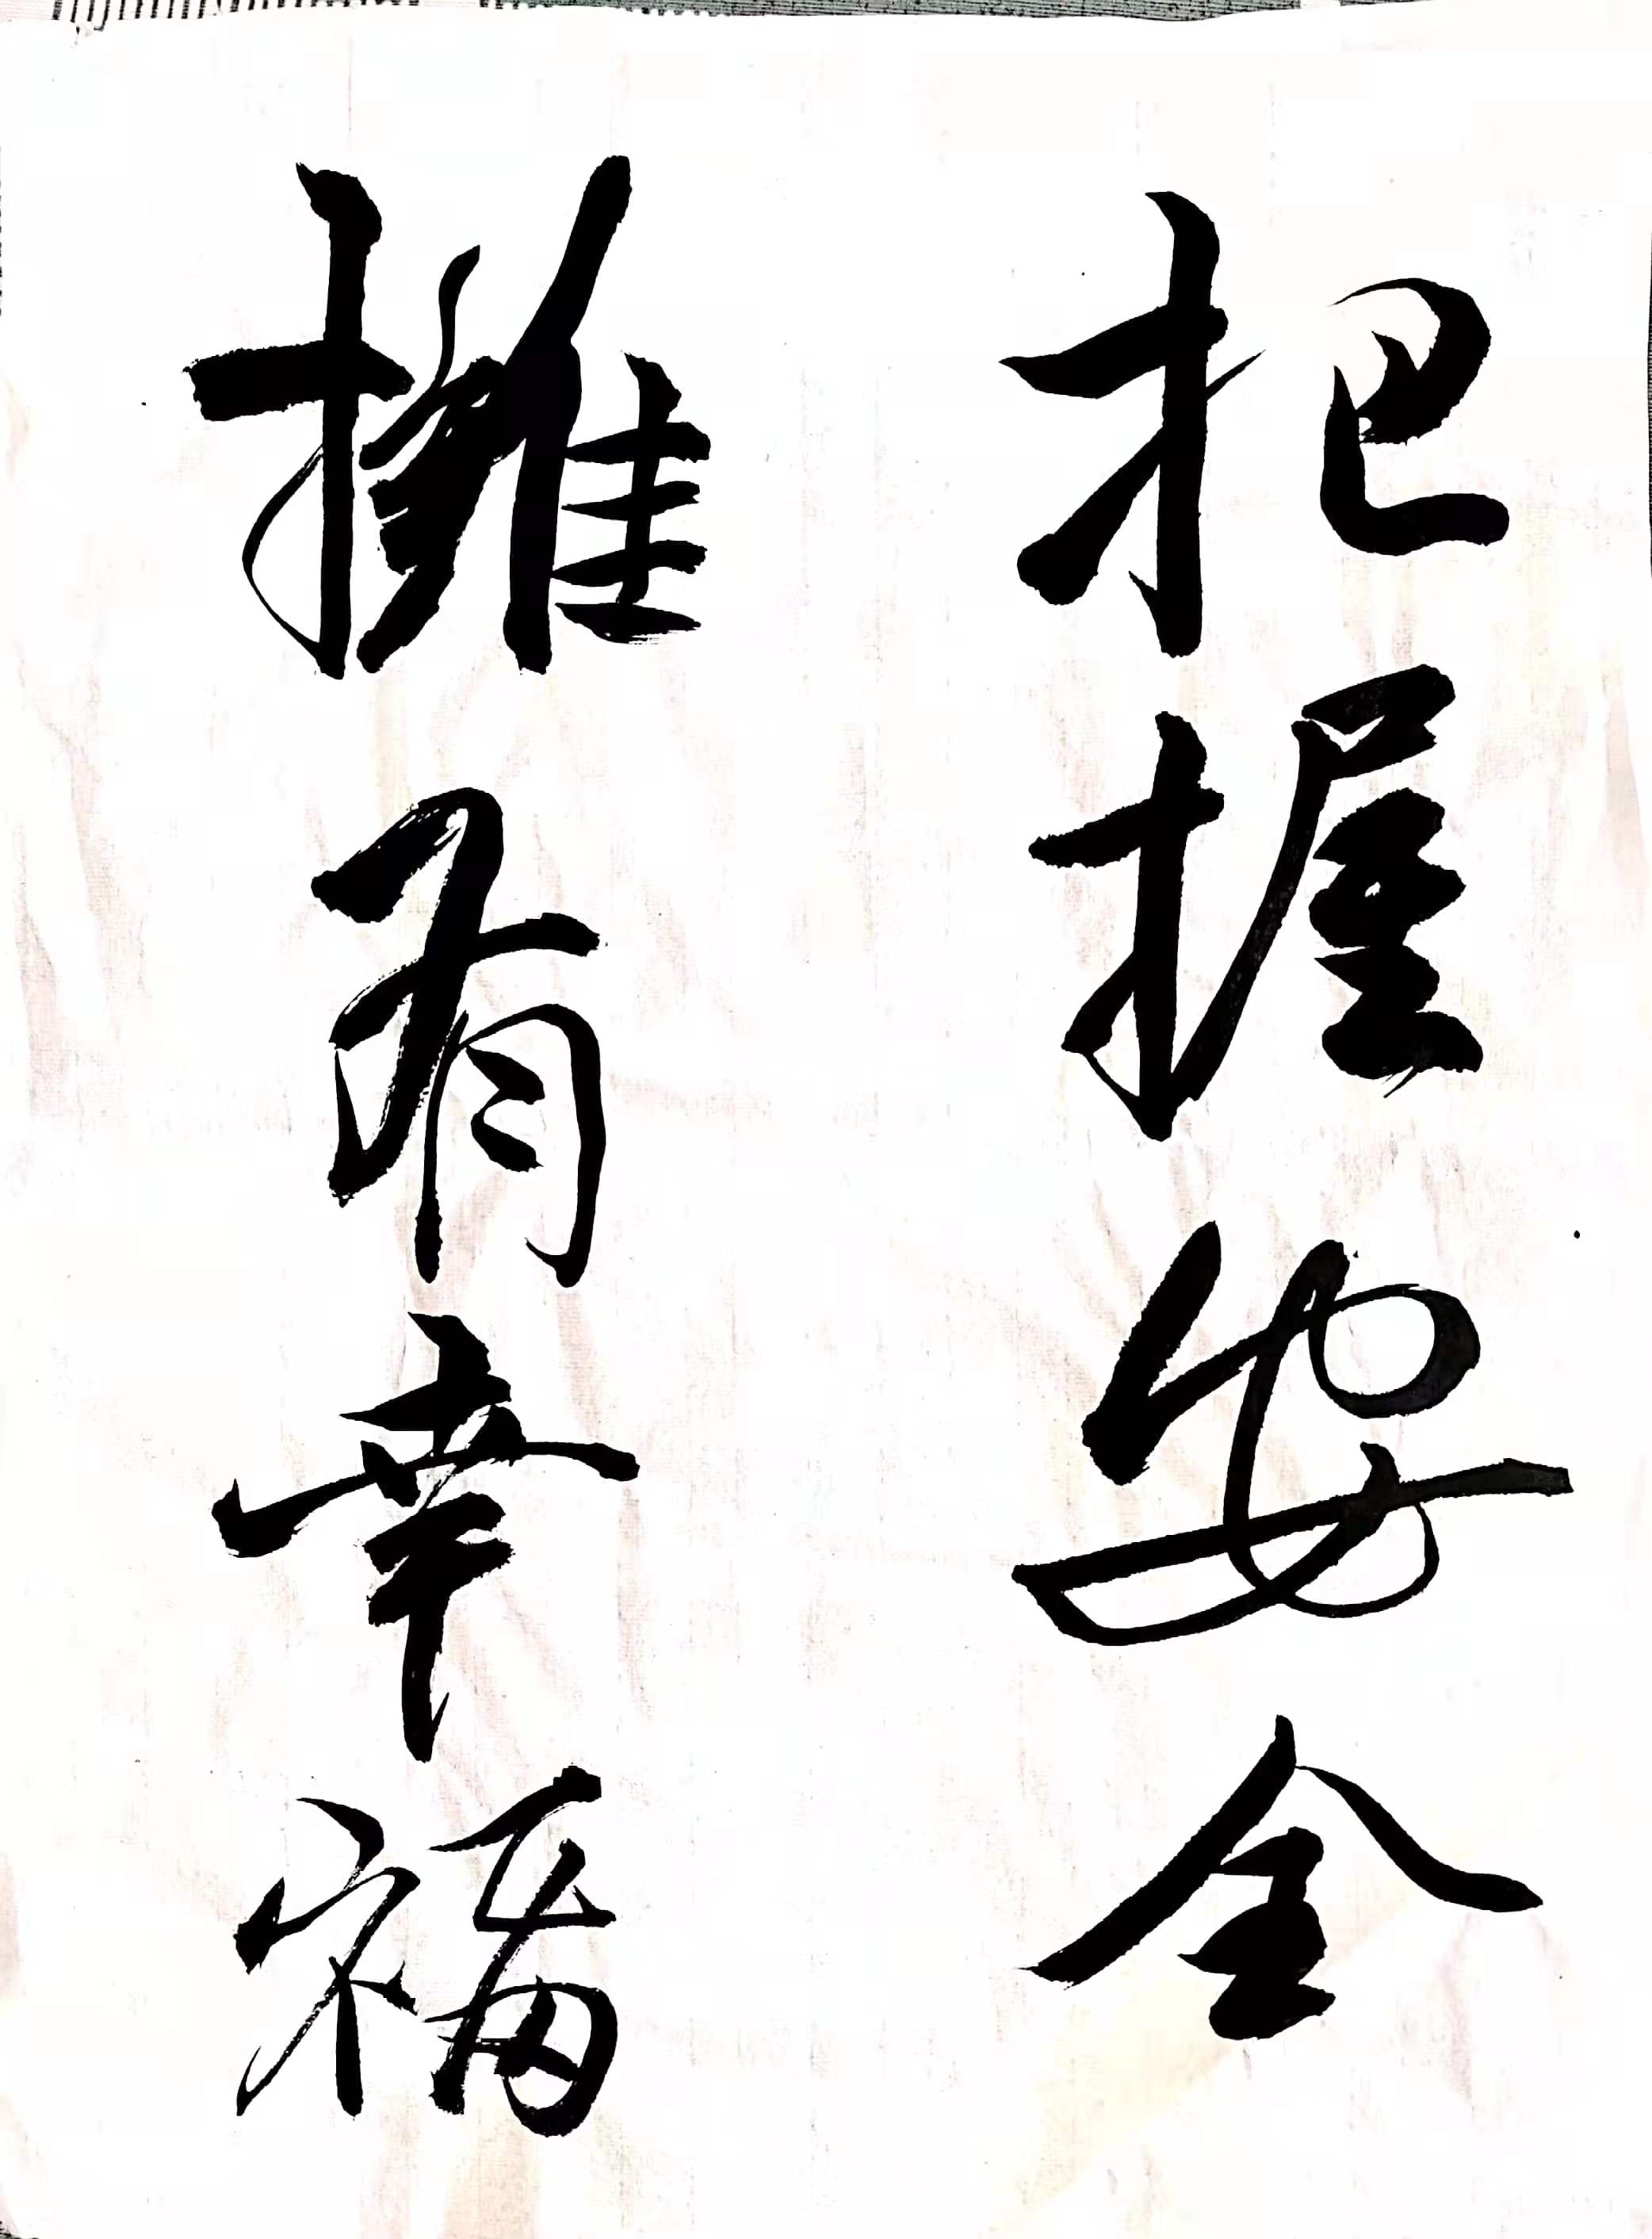 把握安全
擁有幸福